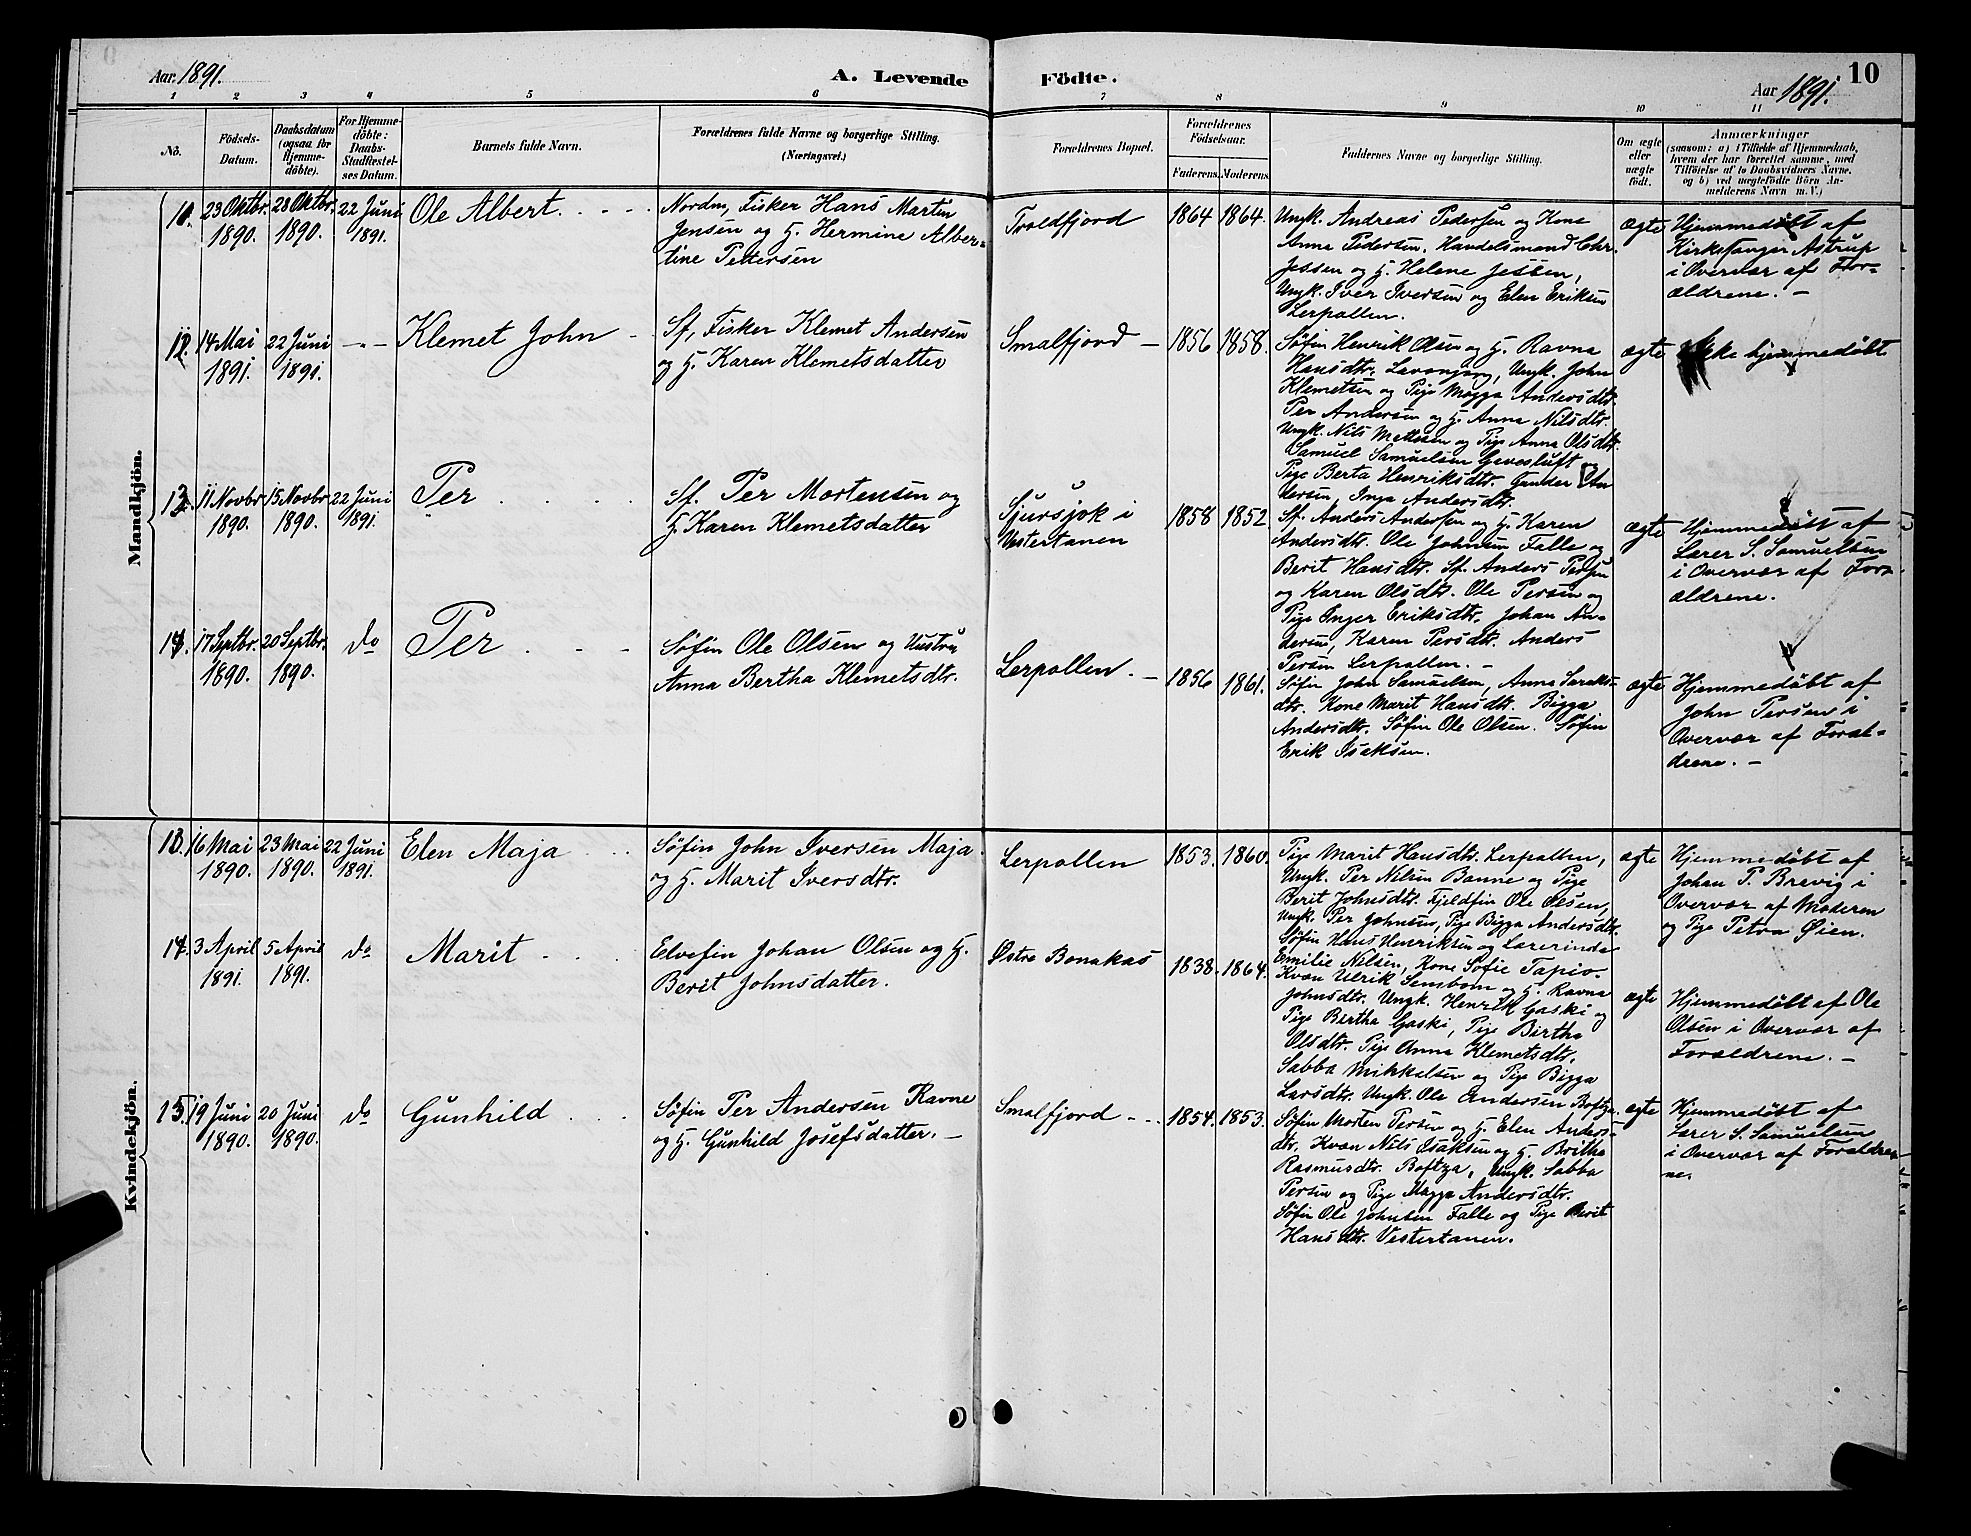 Aar 1891.
A. Levende
Födte.
Aar 1891.
10
1 2 3 4 5 6 7 8 9 10 11
No.
Födsels-
Datum.
Daabsdatum
(ogsaa for
Hjemme-
døbte).
For Hjemme-
døbte:
Daabs-
Stadfæstel-
ses Datum.
Barnets fulde Navn.
Forældrenes fulde Navne og borgerlige Stilling.
(Næringsvei.)
Forældrenes Bopæl.
Forældrenes
Födselsaar.
Faderens. Moderens.
Faddernes Navne og borgerlige Stilling.
Om ægte
eller
uægte
födt.
Anmærkninger
(saasom: a) i Tilfælde af Hjemmedaab,
hvem der har forrettet samme, med
Tilföielse af to Daabsvidners Navne.
og b) ved uægtefödte Börn An-
melderens Navn m. V.)
Mandkjön.
23 Oktbr.
1890.
28 Oktbr.
1890.
22 Juni
1891.
Ole Albert.
Nordm, Fisker Hans Marten
Jensen og H. Hermine Alber-
tine Pettersen
Troldfjord
1864 1864.
Ungk. Andreas Pedersen og Kone
Anna Pedersen, Handelsmand Chr.
Jessen og H. Helene Jessen,
Ungk. Iver Iversen og Elen Eriksen
Lerpollen.
ægte
Hjemmedøbt af
Kirkesanger Astrup
i Overvær af For-
ældrene. –
12. 14 Mai
1891.
22 Juni
1891.
-"-
Klemet John
Sf, Fisker Klemet Andersen
og H. Karen Klemetsdatter
Smalfjord
1856 1858.
Søfin Henrik Olsen og H. Ravna
Hansdtr. Lavonjarg, Ungk. John
Klemetsen og Pige Magga Andersdtr.
Per Andersen og H. Anna Nilsdtr.
Ungk. Nils Mathisen og Pige Anna Olsdtr.
Samuel Samuelsen Gavesluft
Pige Berta Henriksdtr. Gunder An
dersen, Inga Andersdtr.
ægte
Ikke hjemmedøbt
13. 11 Novbr
1890.
15 Novbr
1890.
22 Juni
1891.
Per
Sf. Per Mortensen og
H. Karen Klemetsdatter
Sjursjok i
Vestertanen
1858 1852
Sf. Anders Andersen og H. Karen
Andersdtr. Ole Johnsen Falle og
Berit Hansdtr. Sf. Anders Persen
og Karen Olsdtr. Ole Persen og
Pige Inger Eriksdtr. Johan An-
dersen, Karen Persdtr. Anders
Persen Lerpollen. –
ægte
Hjemmedøbt af
Lærer S. Samuelsen
i Overvær af For-
ældrene.
14. 17 Septbr.
1890.
20 Septbr.
1890.
do
Per
Søfin Ole Olsen og Hustru
Anna Bertha Klemetsdtr.
Lerpollen.
1856 1861.
Søfin John Samuelsen, Anna Saraks-
dtr. Kone Marit Hansdtr. Bigga
Andersdtr. Søfin Ole Olsen. Søfin
Erik Isaksen.
ægte
Hjemmedøbt af
John Persen i
Overvær af Foræl-
drene. –
Kvindekjön.
13. 16 Mai
1890.
23 Mai
1890.
22 Juni
1891.
Elen Maja
Søfin John Iversen Maja
og H. Marit Iversdtr.
Lerpollen
1853. 1860.
Pige Marit Hansdtr. Lerpollen,
Ungk. Per Nilsen Banne og Pige
Berit Johnsdtr. Fjeldfin Ole Olsen,
Ungk. Per Johnsen, Pige Bigga Andersdtr.
Søfin Hans Henriksen og Lærerinde
Emilie Nilsen, Kone Sofie Tapio.
ægte
Hjemmedøbt af
Johan P. Brevig i
Overvær af Moderen
og Pige Petra Øien.
14. 3 April
1891.
5 April
1891.
do
Marit
Elvefin Johan Olsen og H.
Berit Johnsdatter.
Østre Bonakas
1838. 1864.
Kvæn Ulrik Sensbom og H. Ravna
Johnsdtr. Ungk. Henrik Gaski og
Pige Bertha Gaski, Pige Birtha
Olsdtr. Pige Anna Klemetsdtr.
Sabba Mikkelsen og Pige Bigga
Larsdtr. Ungk. Ole Andersen Boftza.
ægte
Hjemmedøbt af Ole
Olsen i Overvær af
Forældrene. –
15. 19 Juni
1890.
20 Juni
1890.
do
Gunhild
Søfin Per Andersen Ravne
og H. Gunhild Josefsdatter. –
Smalfjord
1854. 1853.
Søfin Morten Persen og H. Elen Anders-
dtr. Kvæn Nils Isaksen og H. Britha
Rasmusdtr. Boftza, Ungk. Sabba
Persen og Pige Magga Andersdtr.
Søfin Ole Johnsen Falle og Pige Berit
Hansdtr. Vestertanen.
ægte
Hjemmedøbt af
Lærer S. Samuelsen
i Overvær af Forældre-
ne.